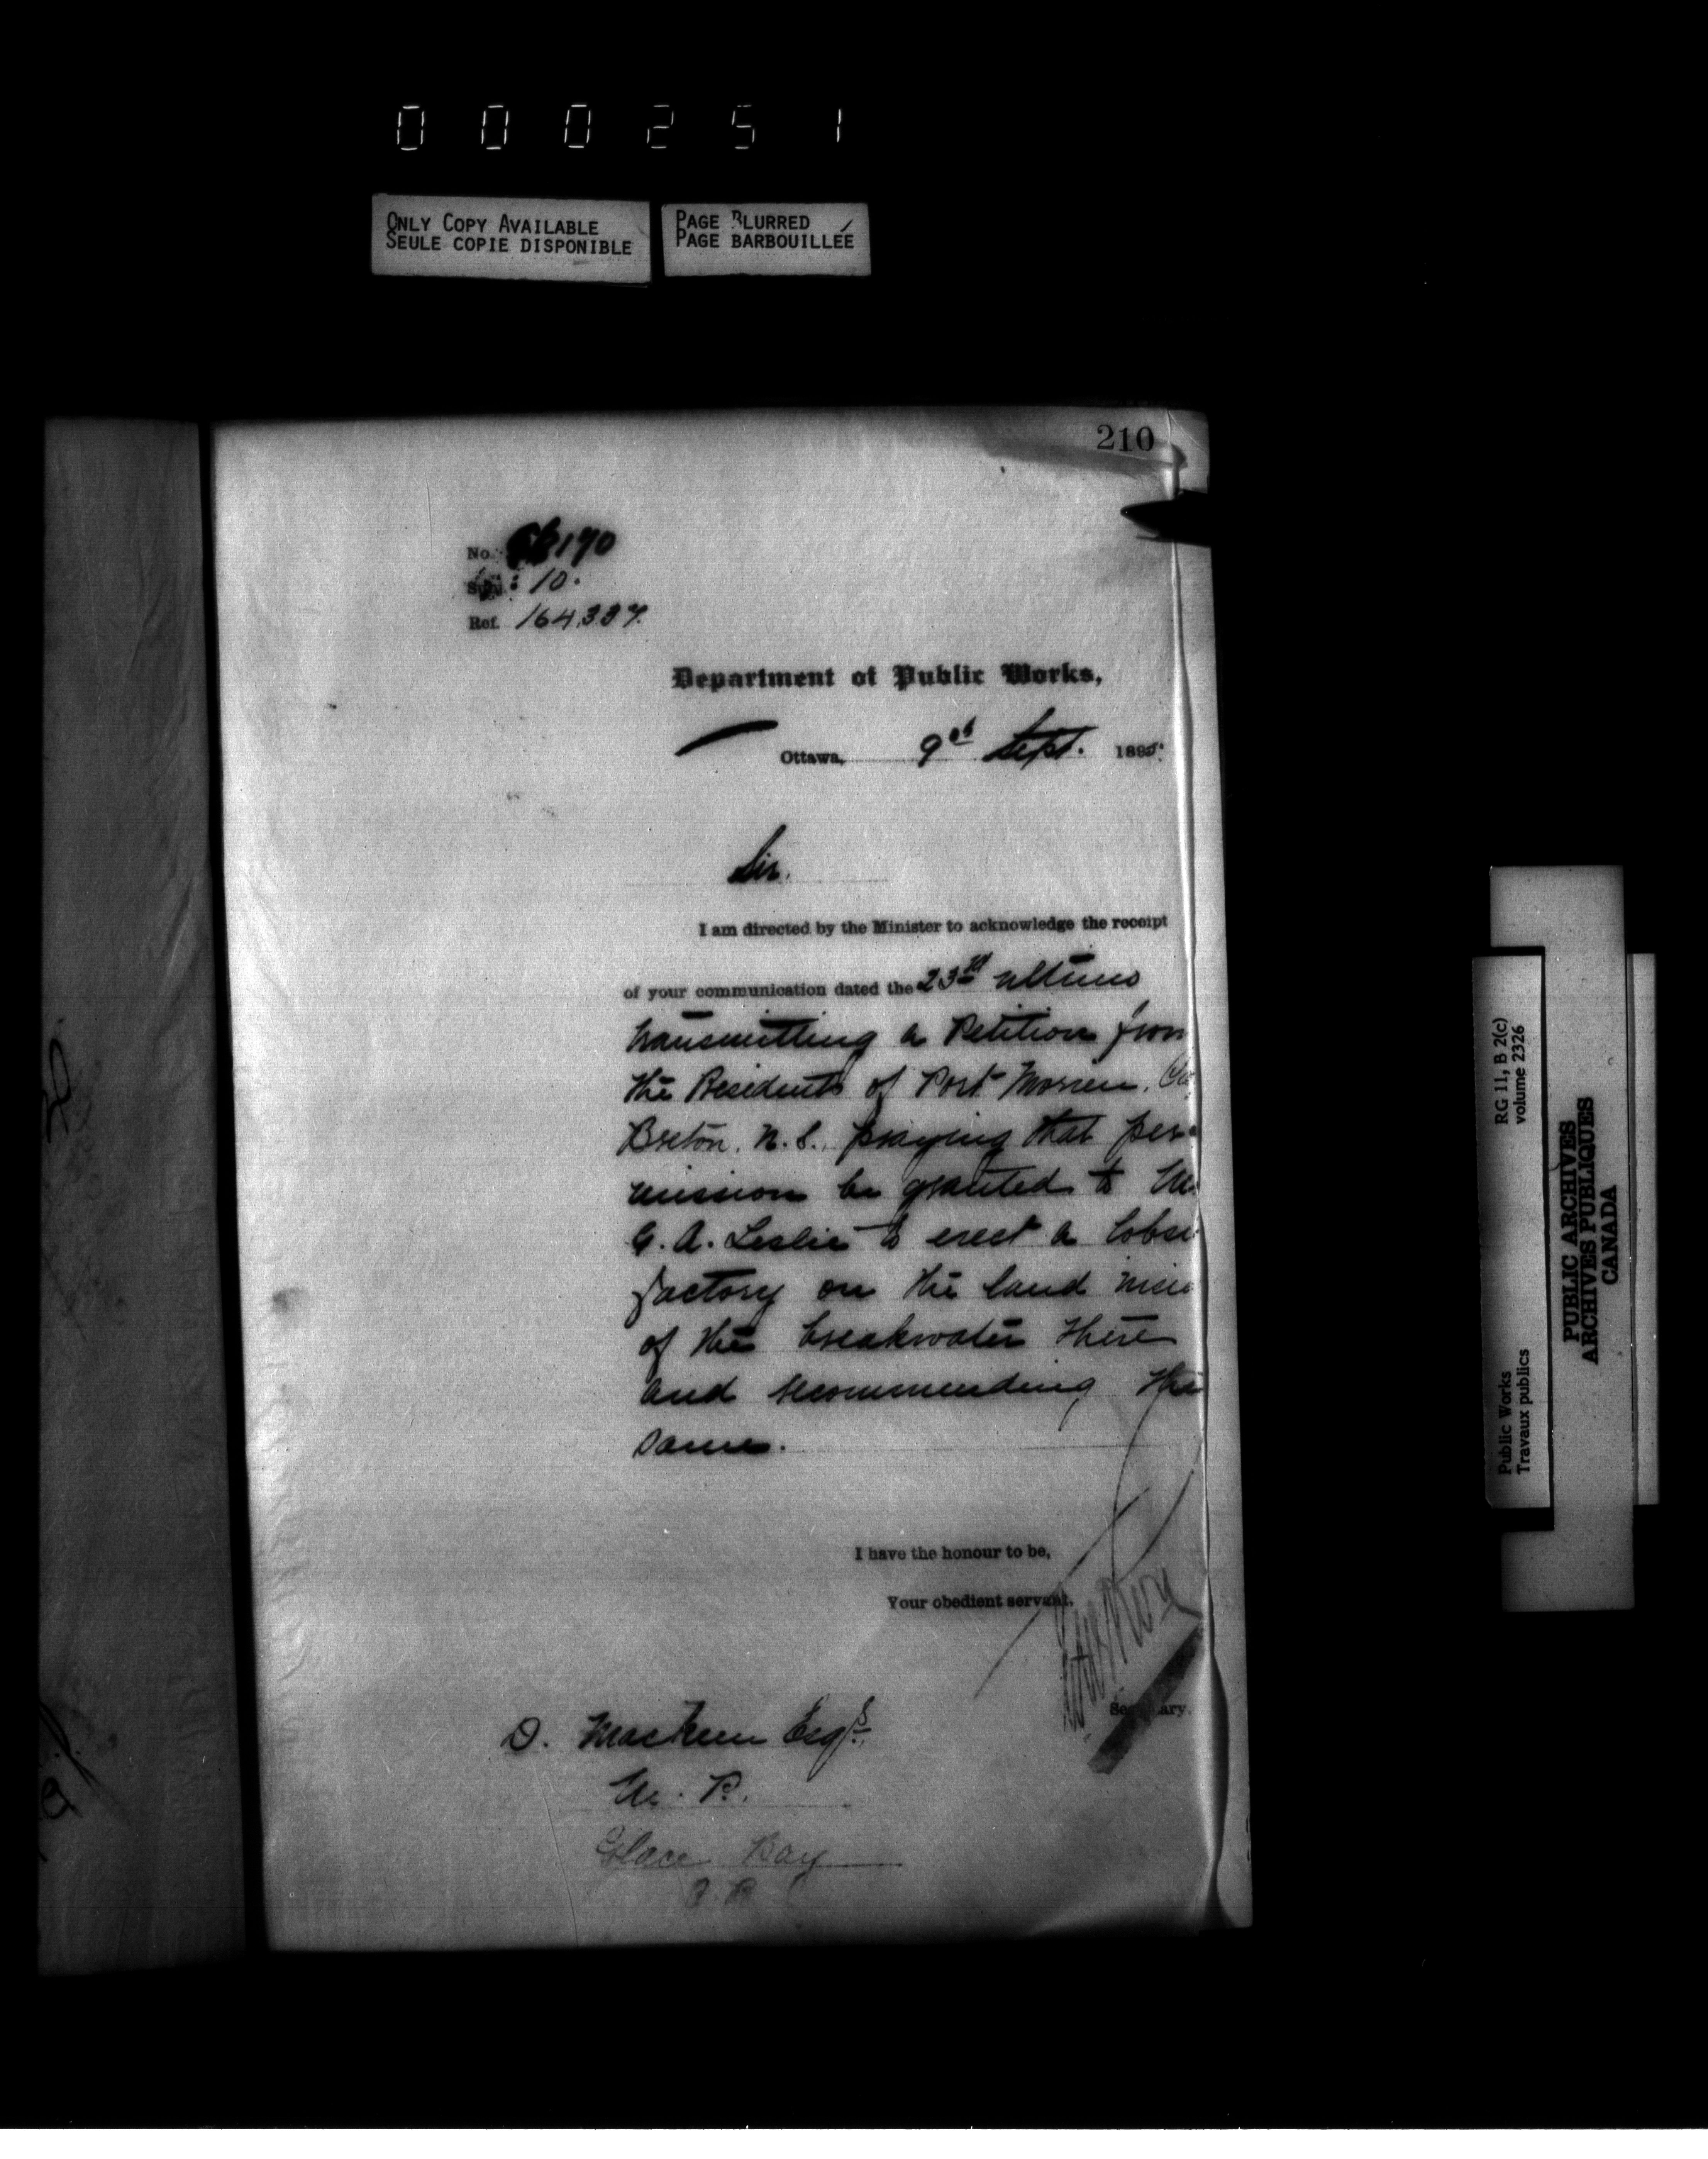 0 0 0 2 5 1
ONLY COPY AVAILABLE
SEULE COPIE DISPONIBLE
PAGE BLURRED
PAGE BARBOUILLÉE
210
No. 190
10.
Ref. 164,337.
Department of Public Works,
Ottawa, 9th Sept. 1895.
Sir.
I am directed by the Minister to acknowledge the receipt
of your communication dated the 23rd ultimo
transmitting a Petition from
the Residents of Port Morien,
Breton, N.S. praying that per-
mission be granted to
G. A. Leslie to erect a
factory on the land
of the breakwater there
and recommending the
same.
I have the honour to be,
Your obedient servant,
Secretary.
D. MacKeen Esqr.
M. P.
Glace Bay
C. B.
RG 11, B 2(c)
volume 2326
Public Works
Travaux publics
PUBLIC ARCHIVES
ARCHIVES PUBLIQUES
CANADA